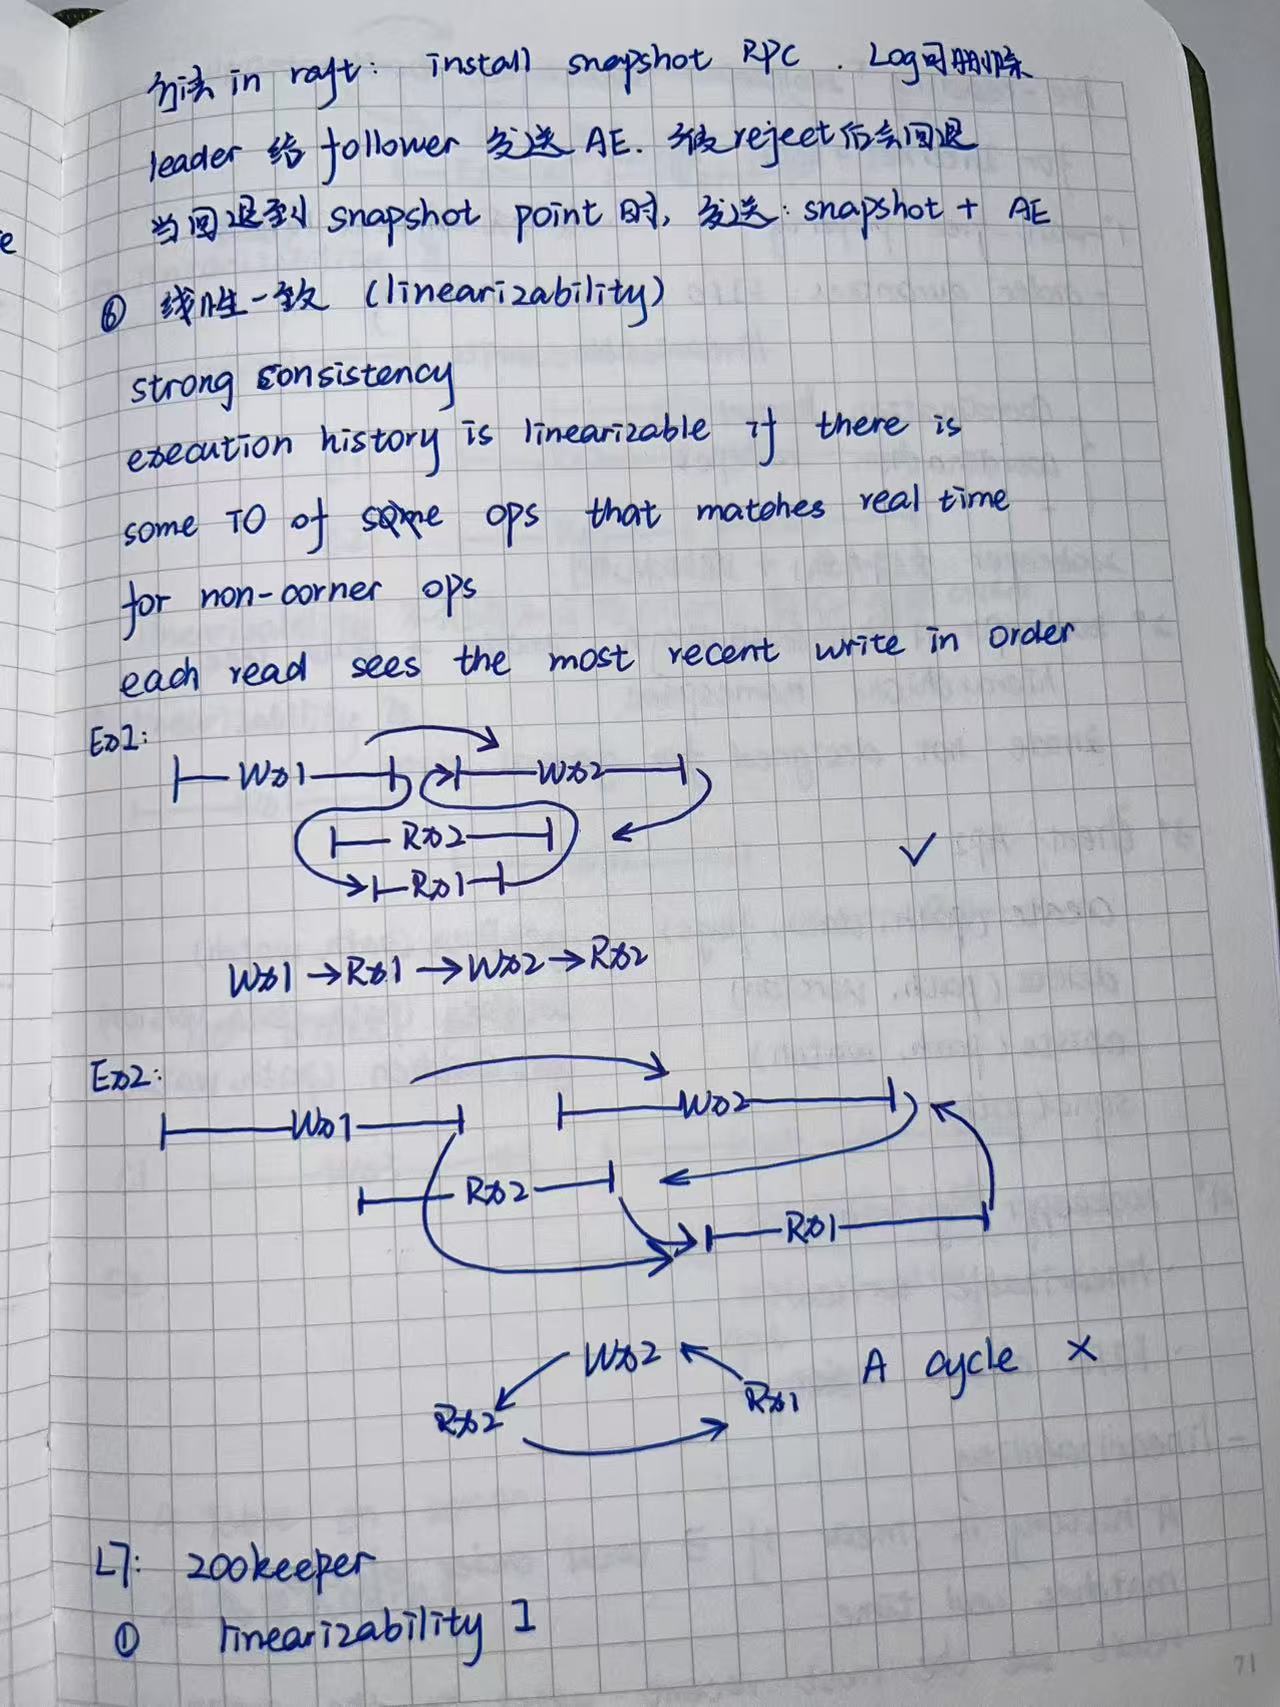 方法 in raft: install snapshot RPC. Log可删除
leader 给 follower 发送 AE. 被reject后会回退
当回退到 snapshot point 时, 发送: snapshot + AE
⑥ 线性一致 (linearizability)
strong consistency
execution history is linearizable if there is
some TO of some ops that matches real time
for non-corner ops
each read sees the most recent write in order
Ex1:
Wx1 Wx2
Rx2
Rx1
✓
Wx1 → Rx1 → Wx2 → Rx2
Ex2:
Wx1 Wx2
Rx2
Rx1
Wx2
Rx2 Rx1
A cycle ×
L7: zookeeper
① linearizability I
71